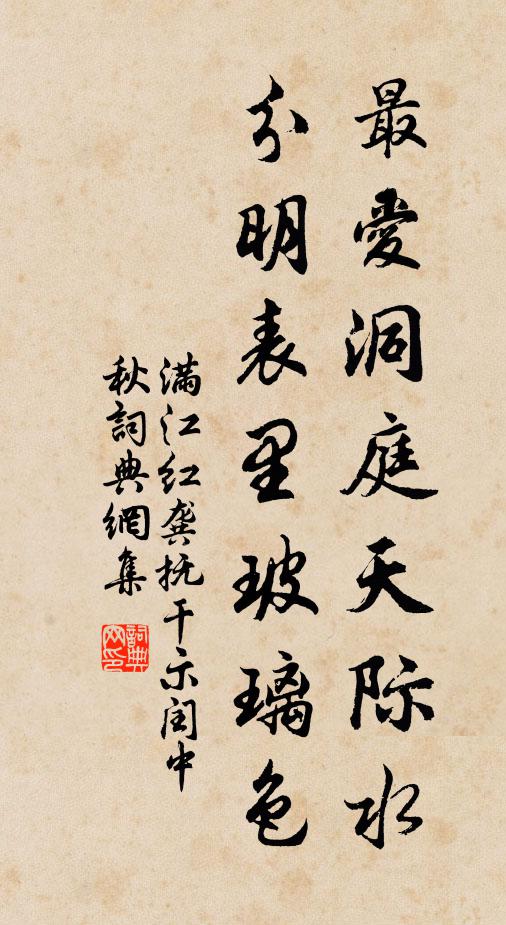 最愛洞庭天际水
分明表里玻璃色
满江红龚抚干示闰中
秋詞典網集
詞典网印